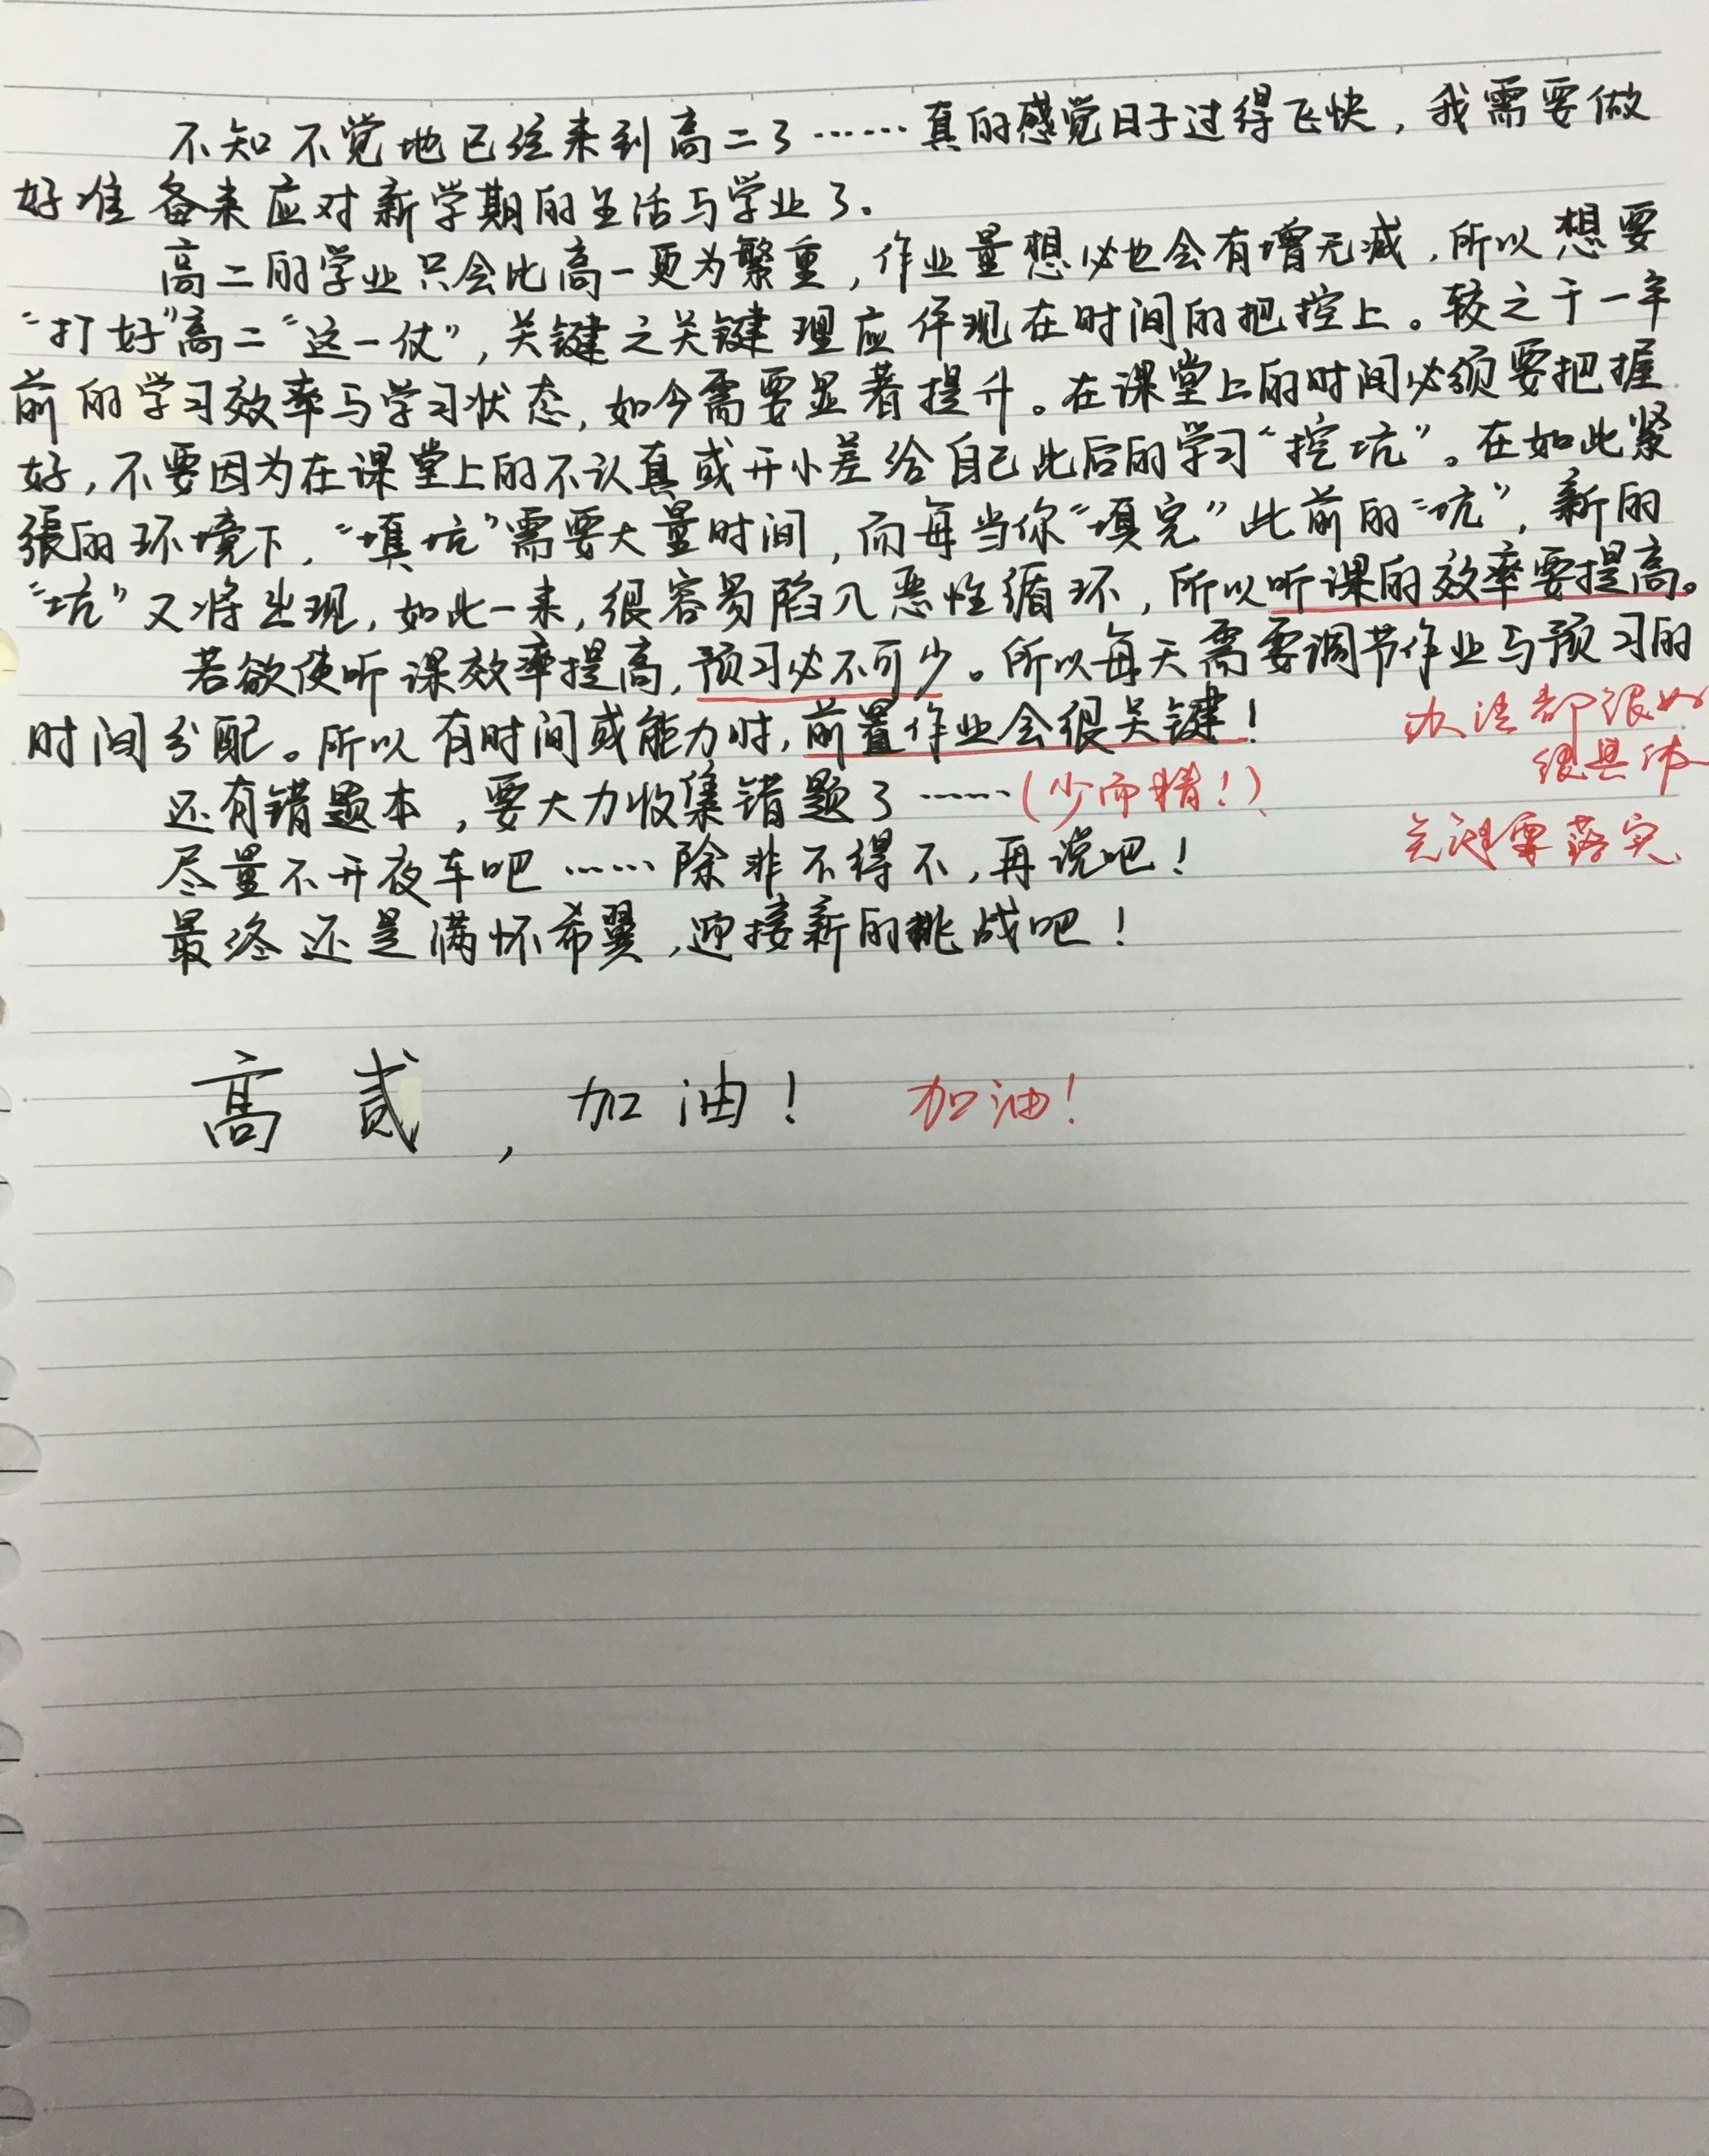 不知不觉地已经来到高二了……真的感觉日子过得飞快，我需要做
好准备来应对新学期的生活与学业了。
高二的学业只会比高一更为繁重，作业量想必也会有增无减，所以想要
“打好”高二“这一仗”，关键之关键理应体现在时间的把控上。较之于一年
前的学习效率与学习状态，如今需要显著提升。在课堂上的时间必须要把握
好，不要因为在课堂上的不认真或开小差给自己此后的学习“挖坑”。在如此紧
張的环境下，“填坑”需要大量时间，而每当你“填完”此前的“坑”，新的
“坑”又将出现，如此一来，很容易陷入恶性循环，所以听课的效率要提高。
若欲使听课效率提高，预习必不可少。所以每天需要调节作业与预习的
时间分配。所以有时间或能力时，前置作业会很关键！
办法都很好
很具体
还有错题本，要大力收集错题了……（少而精！）
关键要落实
尽量不开夜车吧……除非不得不，再说吧！
最终还是满怀希翼，迎接新的挑战吧！
高贰，加油！ 加油！